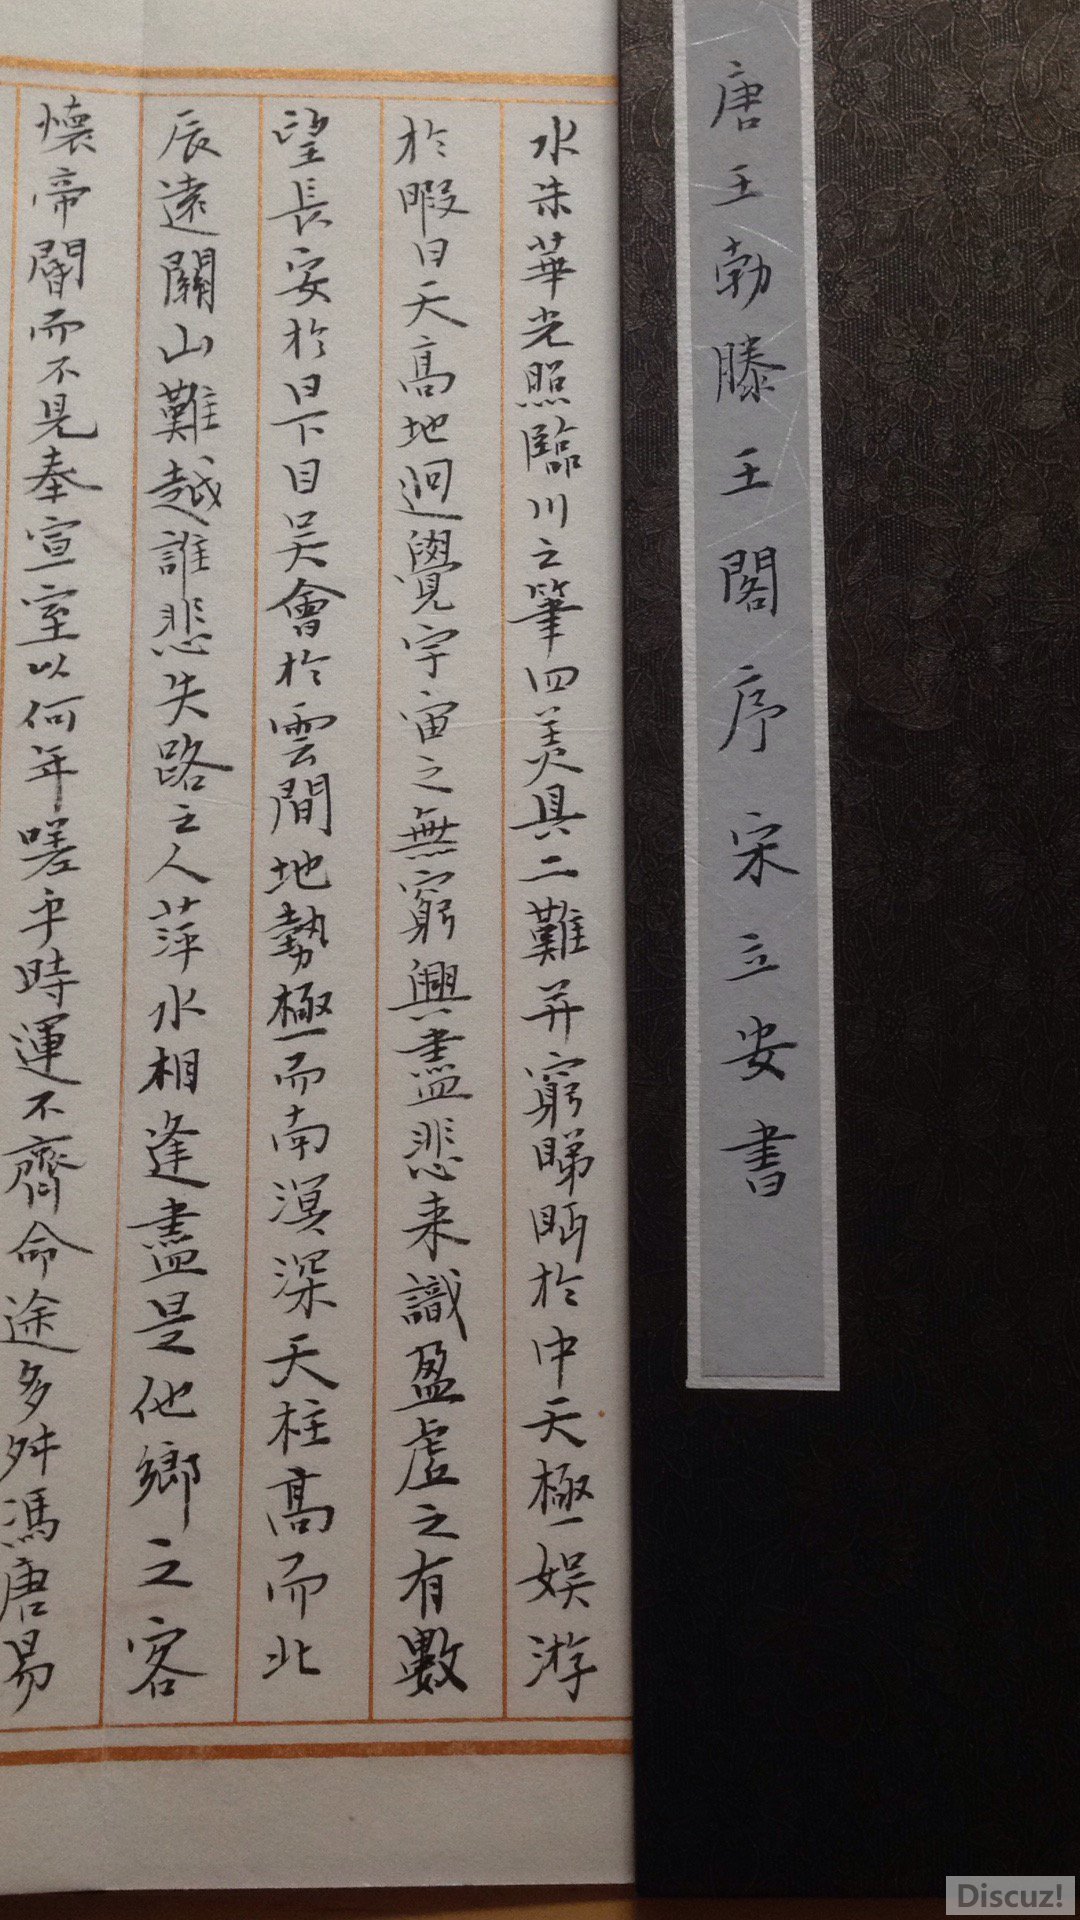 唐王勃滕王閣序 宋立安書
水朱華光照臨川之筆四美具二難并窮睇眄於中天極娱游
於暇日天高地迥覺宇宙之無窮興盡悲来識盈虛之有數
望長安於日下目吴會於雲間地勢極而南溟深天柱高而北
辰遠關山難越誰悲失路之人萍水相逢盡是他鄉之客
懷帝閽而不見奉宣室以何年嗟乎時運不齊命途多舛馮唐易
Discuz!